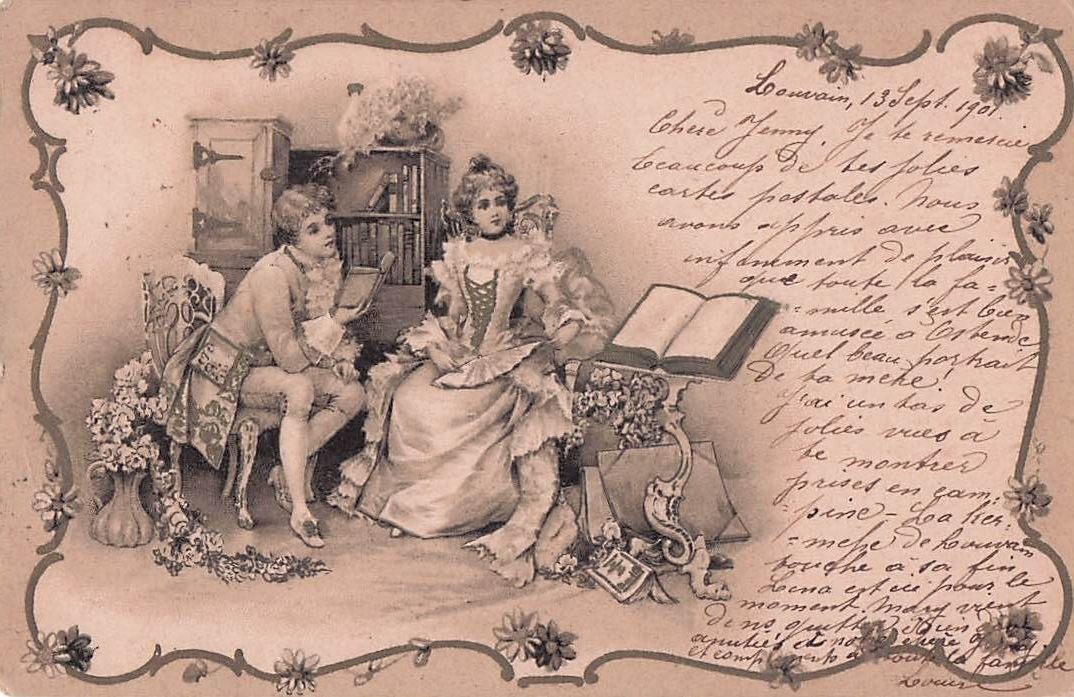 Louvain, 13 Sept. 1901
Chère Jenny. Je te remercie
beaucoup de tes jolies
cartes postales. Nous
avons appris avec
infiniment de plaisir
que toute la fa=
=mille s'est bien
amusée à Ostende
Quel beau portrait
de ta mère!
J'ai un tas de
jolies vues à
te montrer
prises en cam-
-pine - La ker-
=messe de Louvain
touche à sa fin
Lena est ici pour le
moment. Mary vient
de nous quitter. Bien
amitiés de notre chère
et compliments à toute la famille
Louis